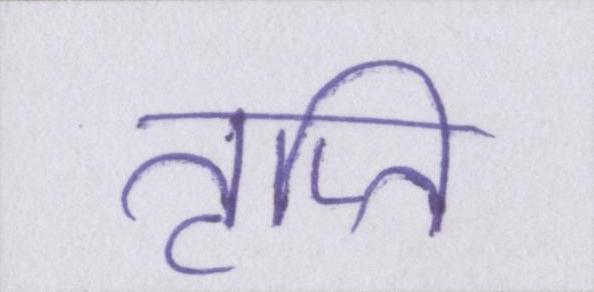 तृप्ति